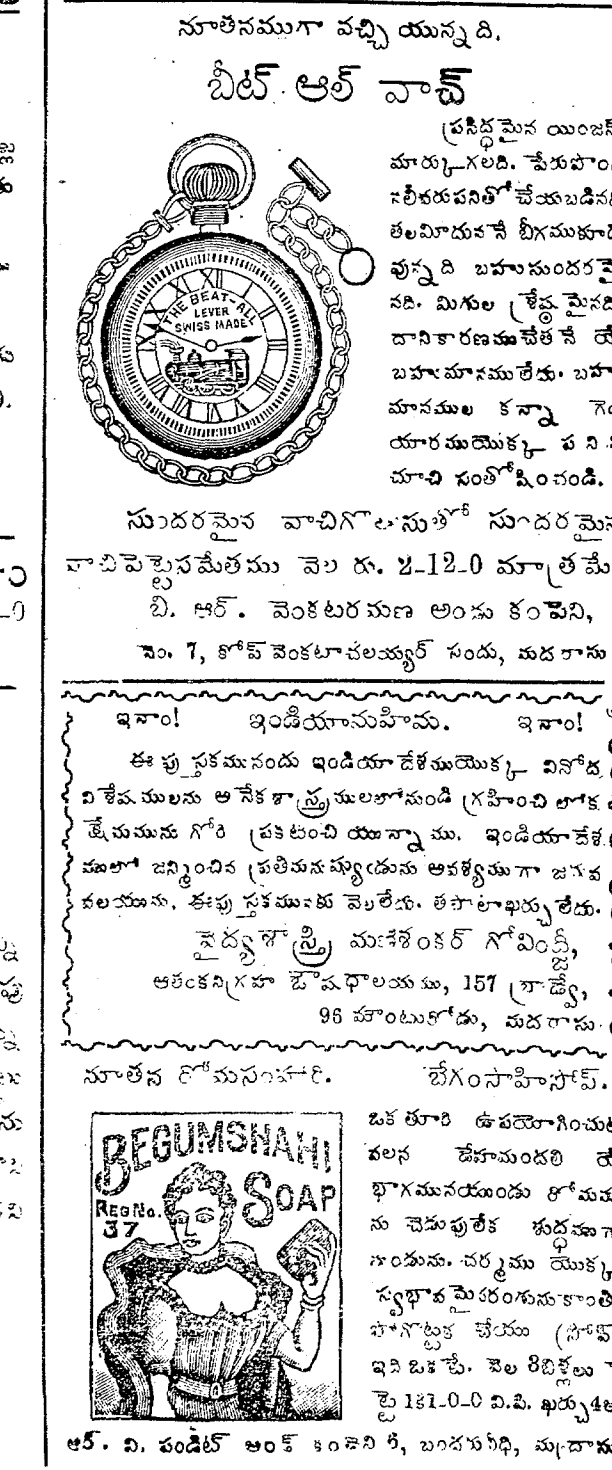 నూతనముగా వచ్చి యున్నది.
బీట్ ఆల్ వాచ్
ప్రసిద్ధమైన యింజన్
మార్కుగలది. పేరుపొం
నలీశరుపనితో చేయబడిన
తలమీదువనే బీగముకూడ
వున్నది బహుసుందరమై
నది. మిగుల శ్రేష్ఠమైనది
దానికారణముచేతనే యే
బహుమానములేదు. బహు
మానముల కన్నా గ
యారముయొక్క పని
చూచి సంతోషించండి.
THE BEAT-ALL
LEVER
SWISS MADE
సుందరమైన వాచిగొలుసుతో సుందరమైన
వాచిపెట్టెసమేతము వెల రు. 2-12-0 మాత్రమే
బి. ఆర్. వెంకటరమణ అండు కంపెని,
నెం. 7, కోప్ వెంకటాచలయ్యర్ సందు, మదరాసు
ఇనాం! ఇండియానుహిమ. ఇనాం!
ఈ పుస్తకమునందు ఇండియాదేశముయొక్క వినోద
విశేషములను అనేకశాస్త్రములలోనుండి గ్రహించి లోక
క్షేమమును గోరి ప్రకటించి యున్నాము. ఇండియాదేశ
ములో జన్మించిన ప్రతిమనుష్యుఁడును అవశ్యముగా జదవ
వలయును. ఈపుస్తకమునకు వెలలేదు. తపాలాఖర్చు లేదు.
వైద్యశాస్త్రి మణిశంకర్ గోవింద్జీ,
ఆతంకనిగ్రహ ఔషధాలయము, 157 బ్రాడ్వే,
96 మౌంటురోడు, మదరాసు.
నూతన రోమసంహారి. బేగంసాహిసోప్.
BEGUMSHAHI
SOAP
REGNo.
37
ఒక తూరి ఉపయోగించుట
వలన దేహమందలి యే
భాగమునయుండు రోమము
ను చెడుపులేక శుద్ధముగా
చర్మము యొక్క
స్వభావమైనరంగునుకాంతి
పోగొట్టక చేయు సోప్
ఇది ఒకటే. వెల 3బిళ్లలు
పెట్టె 1కి1-0-0 వి.పి. ఖర్చు4అ
ఆర్. వి. పండిట్ అండ్ కంపెని బందరువీధి,